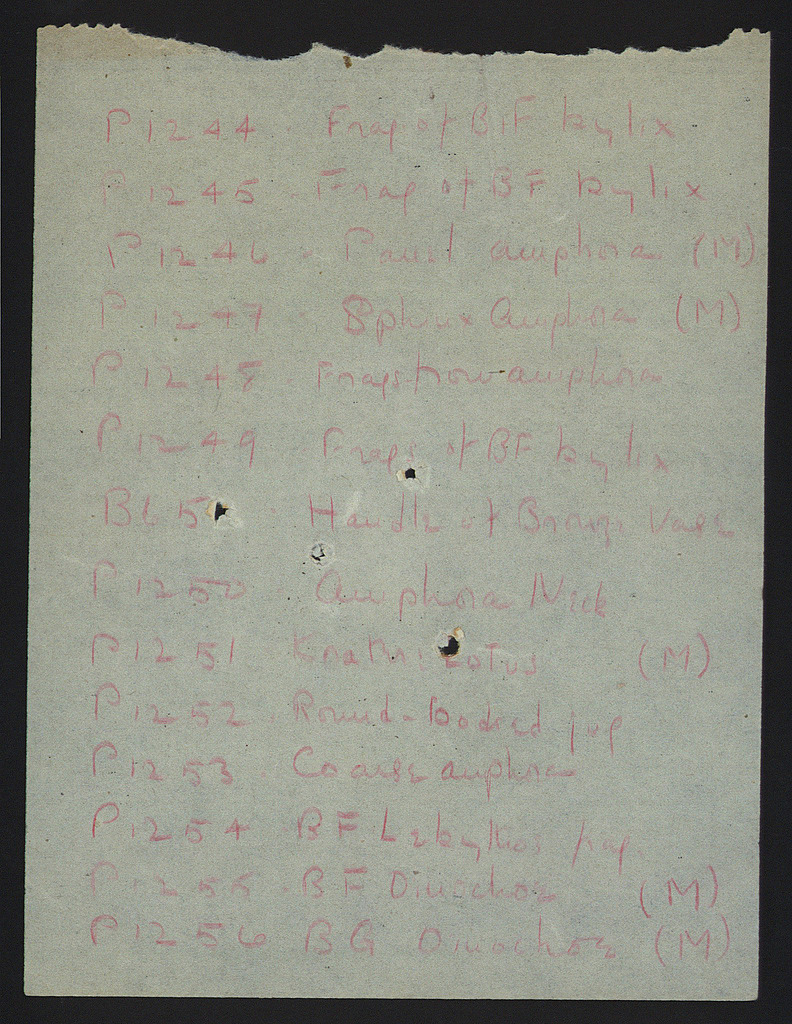 P 1244 - Frag of BF kylix
P 1245 - Frag of BF kylix
P 1246 - Panel amphora (M)
P 1247 - Sphinx Amphora (M)
P 1248 - Frags from amphora
P 1249 - Frags of BF kylix
B 65 Handle of Bronze Vase
P 1250 Amphora Neck
P 1251 Krater Lotus (M)
P 1252 - Round-bodied jug
P 1253 - Coarse amphora
P 1254 BF Lekythos frag.
P 1255 - BF Oinochoe (M)
P 1256 BG Oinochoe (M)